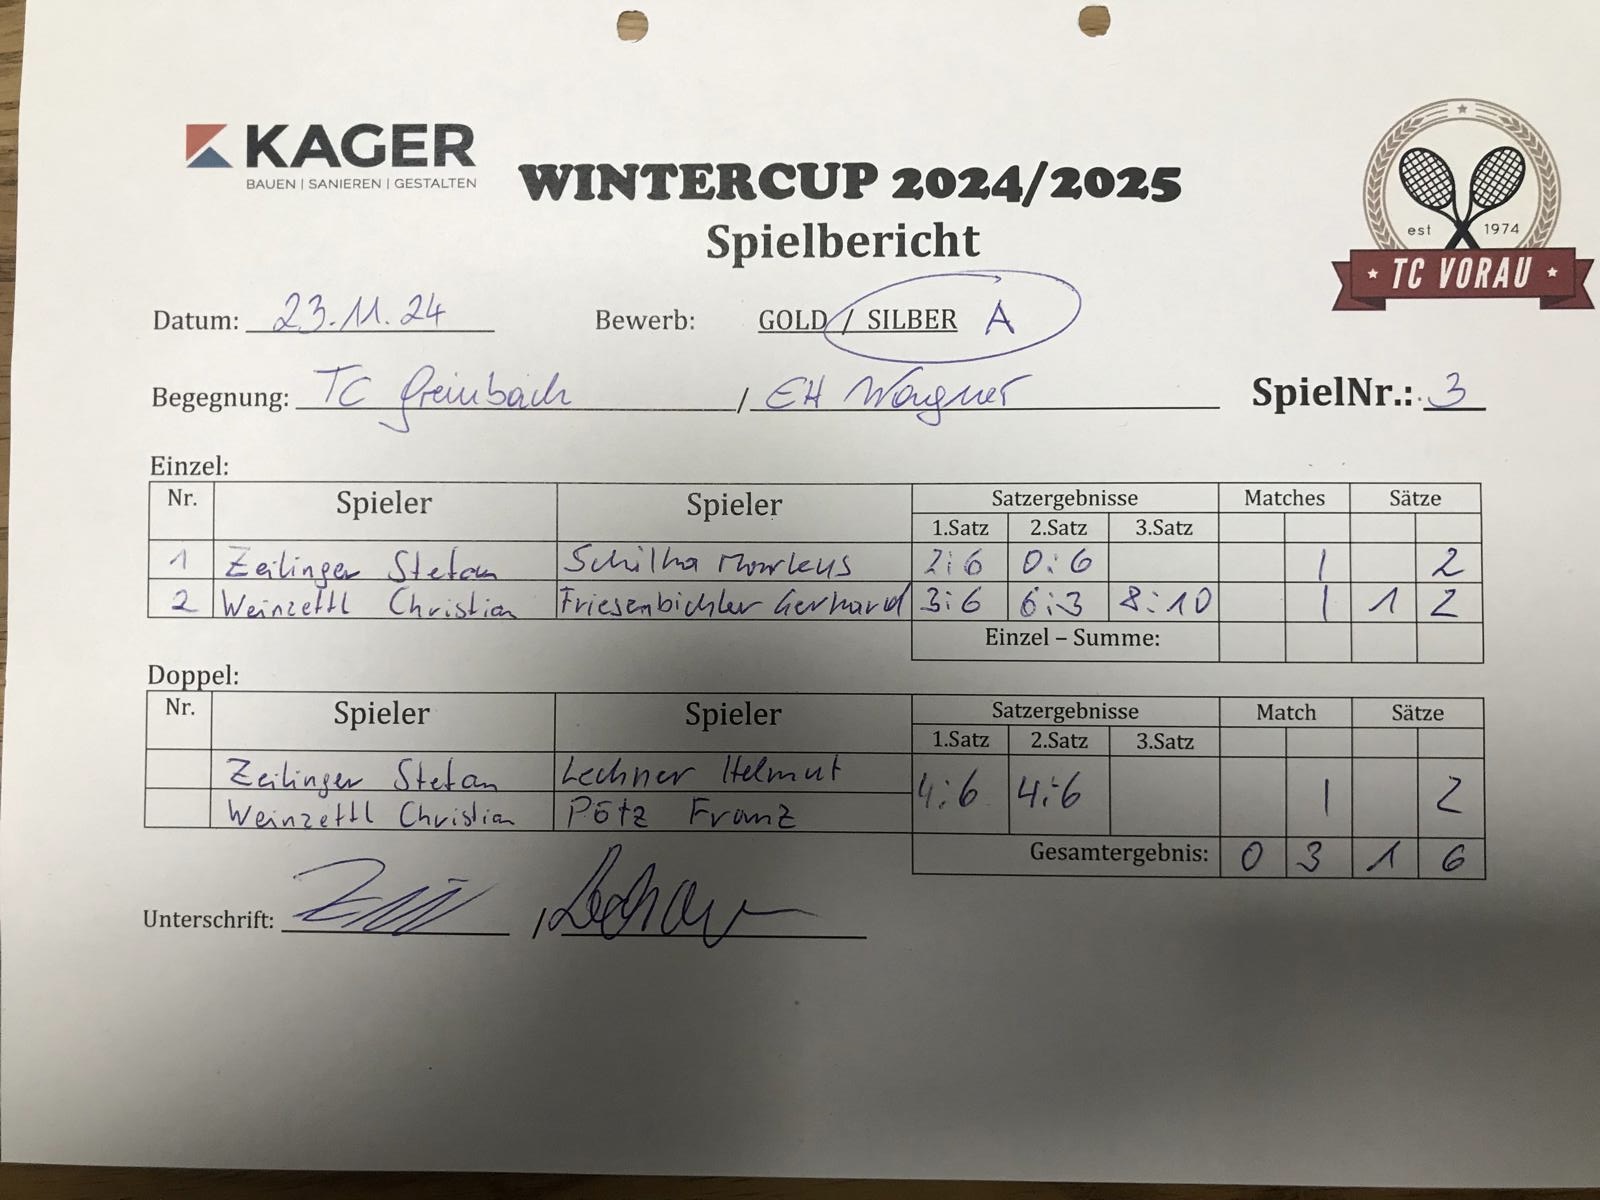 KAGER
BAUEN | SANIEREN | GESTALTEN
WINTERCUP 2024/2025
Spielbericht
est 1974
TC VORAU
Datum: 23.11.24 Bewerb: GOLD / SILBER A
Begegnung: TC Greinbach / EH Wagner SpielNr.: 3
Einzel:
Nr. Spieler Spieler Satzergebnisse Matches Sätze
1.Satz 2.Satz 3.Satz
1 Zeilinger Stefan Schilha Markus 2:6 0:6 1 2
2 Weinzettl Christian Friesenbichler Gerhard 3:6 6:3 8:10 1 1 2
Einzel – Summe:
Doppel:
Nr. Spieler Spieler Satzergebnisse Match Sätze
1.Satz 2.Satz 3.Satz
Zeilinger Stefan Lechner Helmut 4:6 4:6 1 2
Weinzettl Christian Pötz Franz
Gesamtergebnis: 0 3 1 6
Unterschrift: /